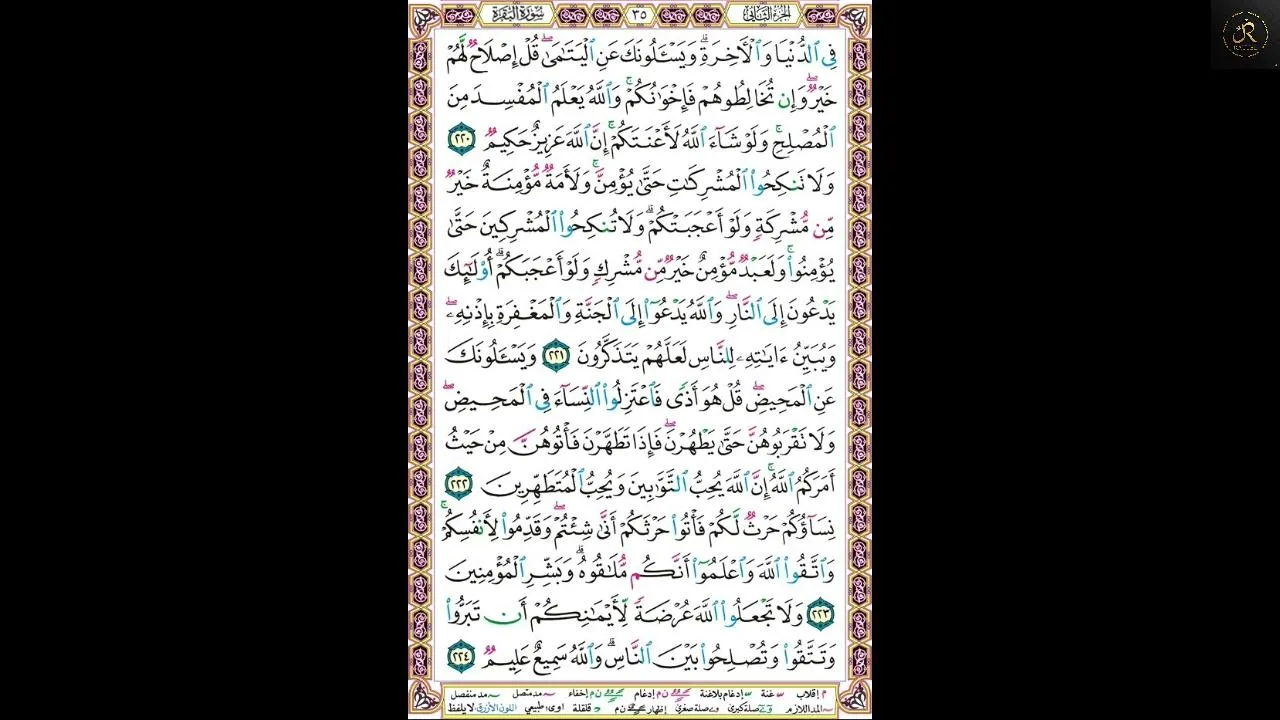 الجزء الثاني ٣٥ سورة البقرة
فِى ٱلدُّنْيَا وَٱلْأَخِرَةِ ۗ وَيَسْـَٔلُونَكَ عَنِ ٱلْيَتَـٰمَىٰ ۖ قُلْ إِصْلَاحٌ لَّهُمْ
خَيْرٌ ۖ وَإِن تُخَالِطُوهُمْ فَإِخْوَٰنُكُمْ ۚ وَٱللَّهُ يَعْلَمُ ٱلْمُفْسِدَ مِنَ
ٱلْمُصْلِحِ ۚ وَلَوْ شَآءَ ٱللَّهُ لَأَعْنَتَكُمْ ۚ إِنَّ ٱللَّهَ عَزِيزٌ حَكِيمٌ ٢٢٠
وَلَا تَنكِحُوا۟ ٱلْمُشْرِكَـٰتِ حَتَّىٰ يُؤْمِنَّ ۚ وَلَأَمَةٌ مُّؤْمِنَةٌ خَيْرٌ
مِّن مُّشْرِكَةٍ وَلَوْ أَعْجَبَتْكُمْ ۗ وَلَا تُنكِحُوا۟ ٱلْمُشْرِكِينَ حَتَّىٰ
يُؤْمِنُوا۟ ۚ وَلَعَبْدٌ مُّؤْمِنٌ خَيْرٌ مِّن مُّشْرِكٍ وَلَوْ أَعْجَبَكُمْ ۗ أُو۟لَـٰٓئِكَ
يَدْعُونَ إِلَى ٱلنَّارِ ۖ وَٱللَّهُ يَدْعُوٓا۟ إِلَى ٱلْجَنَّةِ وَٱلْمَغْفِرَةِ بِإِذْنِهِۦ ۖ
وَيُبَيِّنُ ءَايَـٰتِهِۦ لِلنَّاسِ لَعَلَّهُمْ يَتَذَكَّرُونَ ٢٢١ وَيَسْـَٔلُونَكَ
عَنِ ٱلْمَحِيضِ ۖ قُلْ هُوَ أَذًى فَٱعْتَزِلُوا۟ ٱلنِّسَآءَ فِى ٱلْمَحِيضِ ۖ
وَلَا تَقْرَبُوهُنَّ حَتَّىٰ يَطْهُرْنَ ۖ فَإِذَا تَطَهَّرْنَ فَأْتُوهُنَّ مِنْ حَيْثُ
أَمَرَكُمُ ٱللَّهُ ۚ إِنَّ ٱللَّهَ يُحِبُّ ٱلتَّوَّٰبِينَ وَيُحِبُّ ٱلْمُتَطَهِّرِينَ ٢٢٢
نِسَآؤُكُمْ حَرْثٌ لَّكُمْ فَأْتُوا۟ حَرْثَكُمْ أَنَّىٰ شِئْتُمْ ۖ وَقَدِّمُوا۟ لِأَنفُسِكُمْ ۚ
وَٱتَّقُوا۟ ٱللَّهَ وَٱعْلَمُوٓا۟ أَنَّكُم مُّلَـٰقُوهُ ۗ وَبَشِّرِ ٱلْمُؤْمِنِينَ
٢٢٣ وَلَا تَجْعَلُوا۟ ٱللَّهَ عُرْضَةً لِّأَيْمَـٰنِكُمْ أَن تَبَرُّوا۟
وَتَتَّقُوا۟ وَتُصْلِحُوا۟ بَيْنَ ٱلنَّاسِ ۗ وَٱللَّهُ سَمِيعٌ عَلِيمٌ ٢٢٤
م إقلاب غنة إدغام بلاغنة ن م إدغام ن م إخفاء مد متصل مد منفصل
المد اللازم صلة كبرى صلة صغرى إظهار ن م قلقلة اوى: طبيعي اللون الأزرق: لا يلفظ